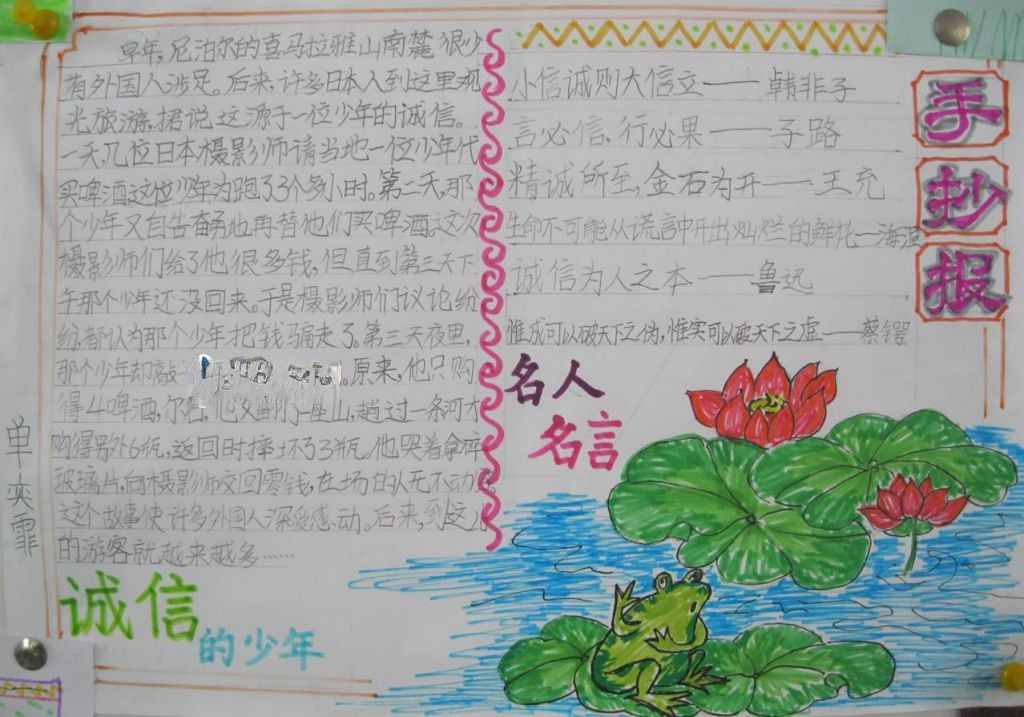 早年,尼泊尔的喜马拉雅山南麓很少
有外国人涉足。后来,许多日本人到这里观
光旅游,据说这源于一位少年的诚信。
一天,几位日本摄影师请当地一位少年代
买啤酒,这位少年为跑了3个多小时。第二天,那
个少年又自告奋勇地再替他们买啤酒。这次
摄影师们给了他很多钱,但直到第三天下
午那个少年还没回来。于是摄影师们议论纷
纷,都认为那个少年把钱骗走了。第三天夜里,
那个少年却敲 。原来,他只购
得4啤酒,尔后,他又翻了一座山,趟过一条河才
购得另外6瓶,返回时摔坏了3瓶。他哭着拿碎
玻璃片,向摄影师交回零钱,在场的人无不动
这个故事使许多外国人深受感动。后来,到这儿
的游客就越来越多……
诚信
的少年
单奕霏
小信诚则大信立——韩非子
言必信,行必果——子路
精诚所至,金石为开——王充
生命不可能从谎言中开出灿烂的鲜花—海涅
诚信为人之本——鲁迅
惟成可以破天下之伪,惟实可以破天下之虚——蔡锷
名人
名言
手
抄
报